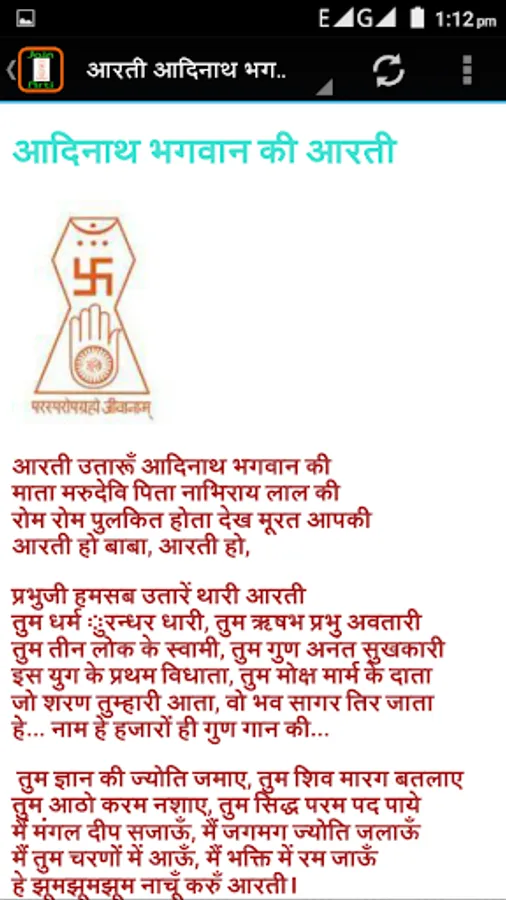 E G 1:12 pm
Join
Arti
आरती आदिनाथ भग..
आदिनाथ भगवान की आरती
परस्परोपग्रहो जीवानाम्
आरती उतारूँ आदिनाथ भगवान की
माता मरुदेवि पिता नाभिराय लाल की
रोम रोम पुलकित होता देख मूरत आपकी
आरती हो बाबा, आरती हो,
प्रभुजी हमसब उतारें थारी आरती
तुम धर्म ुरन्धर धारी, तुम ऋषभ प्रभु अवतारी
तुम तीन लोक के स्वामी, तुम गुण अनत सुखकारी
इस युग के प्रथम विधाता, तुम मोक्ष मार्म के दाता
जो शरण तुम्हारी आता, वो भव सागर तिर जाता
हे... नाम हे हजारों ही गुण गान की...
तुम ज्ञान की ज्योति जमाए, तुम शिव मारग बतलाए
तुम आठो करम नशाए, तुम सिद्ध परम पद पाये
मैं मंगल दीप सजाऊँ, मैं जगमग ज्योति जलाऊँ
मैं तुम चरणों में आऊँ, मैं भक्ति में रम जाऊँ
हे झूमझूमझूम नाचूँ करुँ आरती।